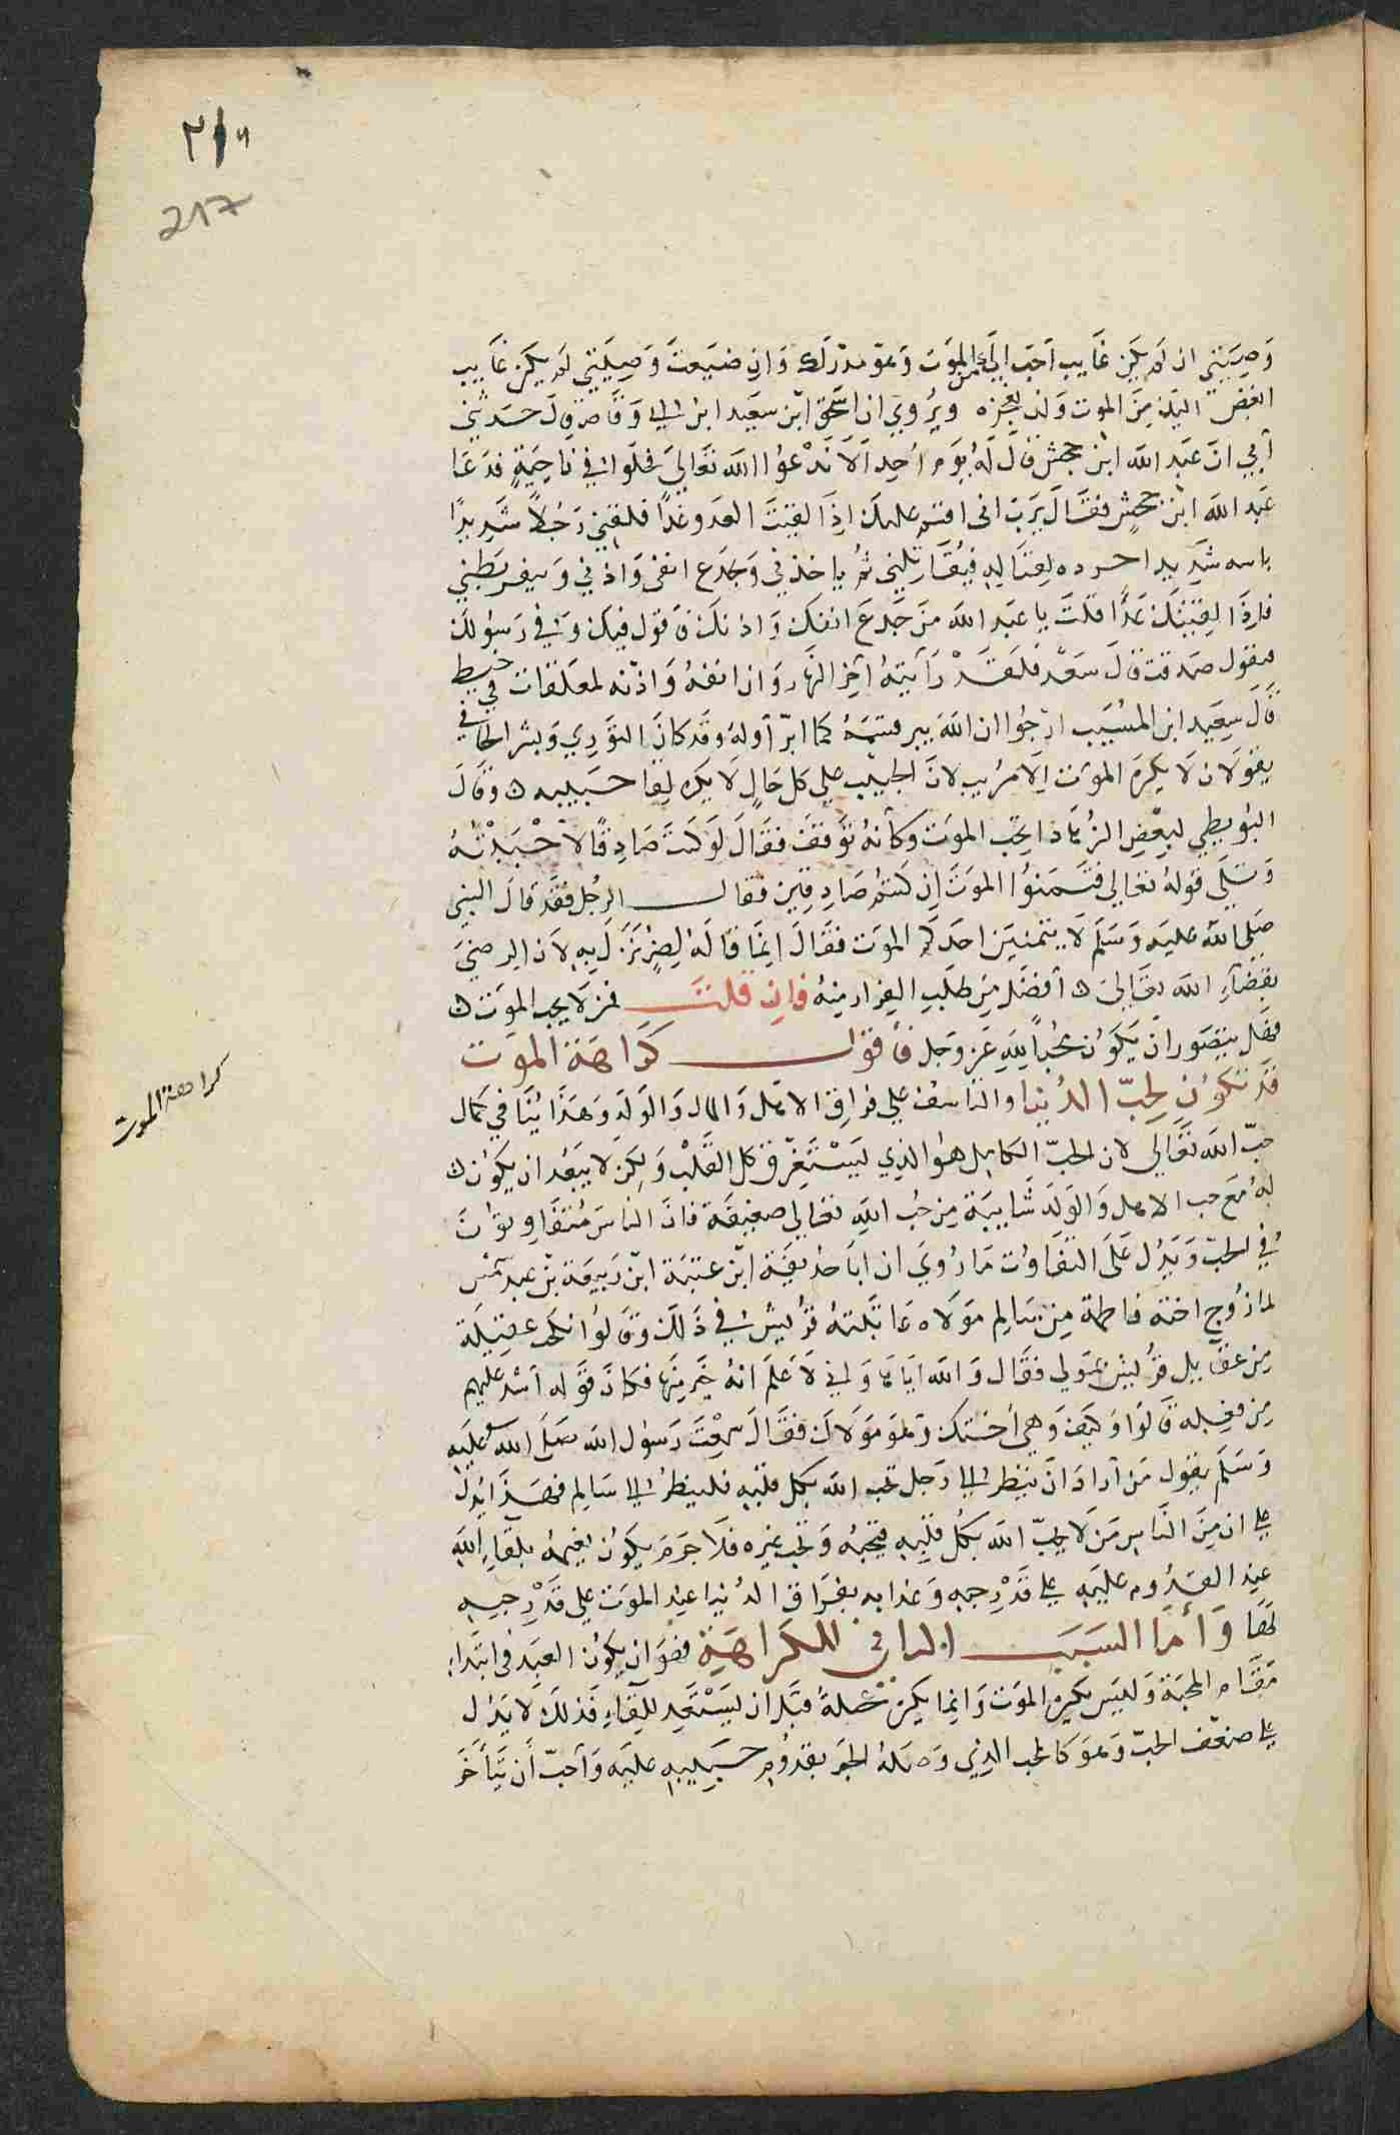 ٢١٧
217
وصيتي ان لم يكن غايب احب اليك من الموت وهو مدركك وان ضيعت وصيتي لم يكن غايب
ابغض اليك من الموت ولن تعجزه ويروي ان اسحق ابن سعيد ابن ابي وقاص قال حدثني
أبي ان عبد الله ابن جحش قال له يوم احد الا ندعوا الله تعالى فخلوا في ناحية فدعا
عبد الله ابن جحش فقال يرب اني اقسم عليك اذا لقيت العدو غدا فلقني رجلا شديدا
باسه شديدا حرده اقاتله فيك ويقاتلني ثم ياخذني ويجدع انفي واذني ويبقر بطني
فاذا لقيتك غدا قلت يا عبد الله من جدع انفك واذنك فاقول فيك وفي رسولك
فيقول صدقت قال سعد فلقد رأيته آخر النهار وان انفه واذنه لمعلقات في خيط
قال سعيد ابن المسيب ارجوا ان الله يبر قسمه كما ابر أوله وقد كان الثوري وبشر الحافي
يقولان لا يكره الموت الا مريب لان الحبيب علي كل حال لا يكره لقا حبيبه ه وقال
البويطي لبعض الزهاد اتحب الموت وكأنه توقف فقال لو كنت صادقا لاحببته
وتلى قوله تعالى فتمنوا الموت ان كنتم صادقين فقال الرجل فقد قال النبي
صلى الله عليه وسلم لا يتمنين احدكم الموت فقال انما قاله لضر نزل به لان الرضى
بقضآء الله تعالى ه أفضل من طلب الفرار منه فان قلت فمن لا يحب الموت ه
فهل يتصور ان يكون محبا لله عز وجل فأقول كراهة الموت
قد تكون لحب الدنيا والتاسف علي فراق الاهل والمال والولد وهذا ينافي كمال
حب الله تعالى لان الحب الكامل هو الذي يستغرق كل القلب ولكن لا يبعد ان يكون ه
له مع حب الاهل والولد شايبة من حب الله تعالى ضعيفة فان الناس متفاوتون
في الحب ويدل على التفاوت ما روي ان ابا حذيفة ابن عتبة ابن ربيعة بن عبد شمس
لما زوج اخته فاطمة من سالم مولاه عاتبته قريش في ذلك وقالوا انكحت عقيلة
من عقايل قريش بمولي فقال والله اياها واني لاعلم انه خير منها فكان قوله أشد عليهم
من فعله قالوا وكيف وهي اختك وهو مولاك فقال سمعت رسول الله صلى الله عليه
وسلم يقول من أراد ان ينظر الى رجل يحب الله بكل قلبه فلينظر الى سالم فهذا يدل
علي ان من الناس من لا يحب الله بكل قلبه فيحبه ويحب غيره فلا جرم يكون نعيمه بلقاء الله
عند القدوم عليه علي قدر حبه وعذابه بفراق الدنيا عند الموت علي قدر حبه
لها وأما السبب الثاني للكراهية فهو ان يكون العبد في ابتداء
مقام المحبة وليس يكره الموت وانما يكره عجلة قبل ان يستعد للقاء فذلك لا يدل
علي ضعف الحب وهو كالمحب الذي وصله الخبر بقدوم حبيبه عليه وأحب أن يتأخر
كراهة الموت